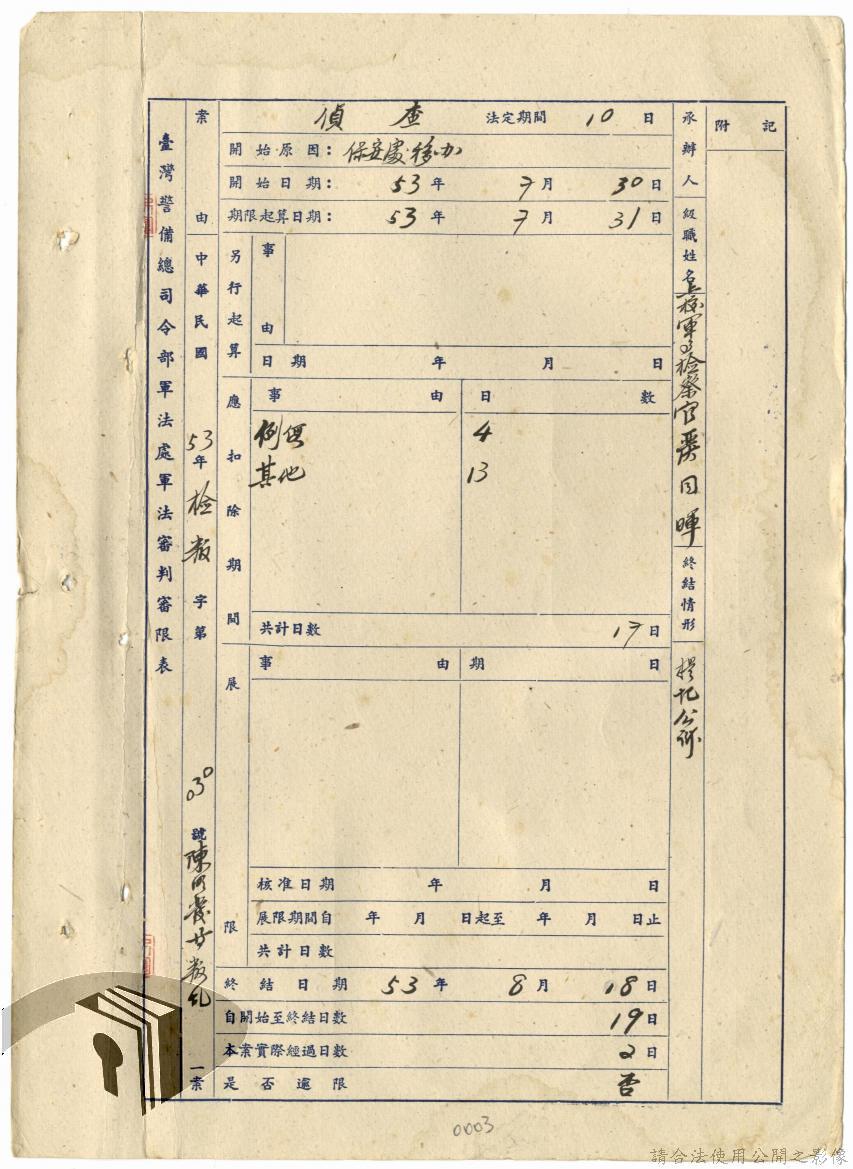 臺灣警備總司令部軍法處軍法審判審限表
案由 中華民國 53年 檢叛 字第 030 號 陳 叛亂 一案
偵查 法定期間 10 日
開始原因：保安處移办
開始日期：53年 7月 30日
期限起算日期：53年 7月 31日
另行起算
事由
日期 年 月 日
應扣除期間
事由 日數
例假 4
其他 13
共計日數 17日
展限
事由 期日
核准日期 年 月 日
展限期間自 年 月 日起至 年 月 日止
共計日數
終結日期 53年 8月 18日
自開始至終結日數 19日
本案實際經過日數 2日
是否逾限 否
承辦人
級職姓名 軍事檢察官
終結情形
提起公訴
附記
0003
請合法使用公開之影像